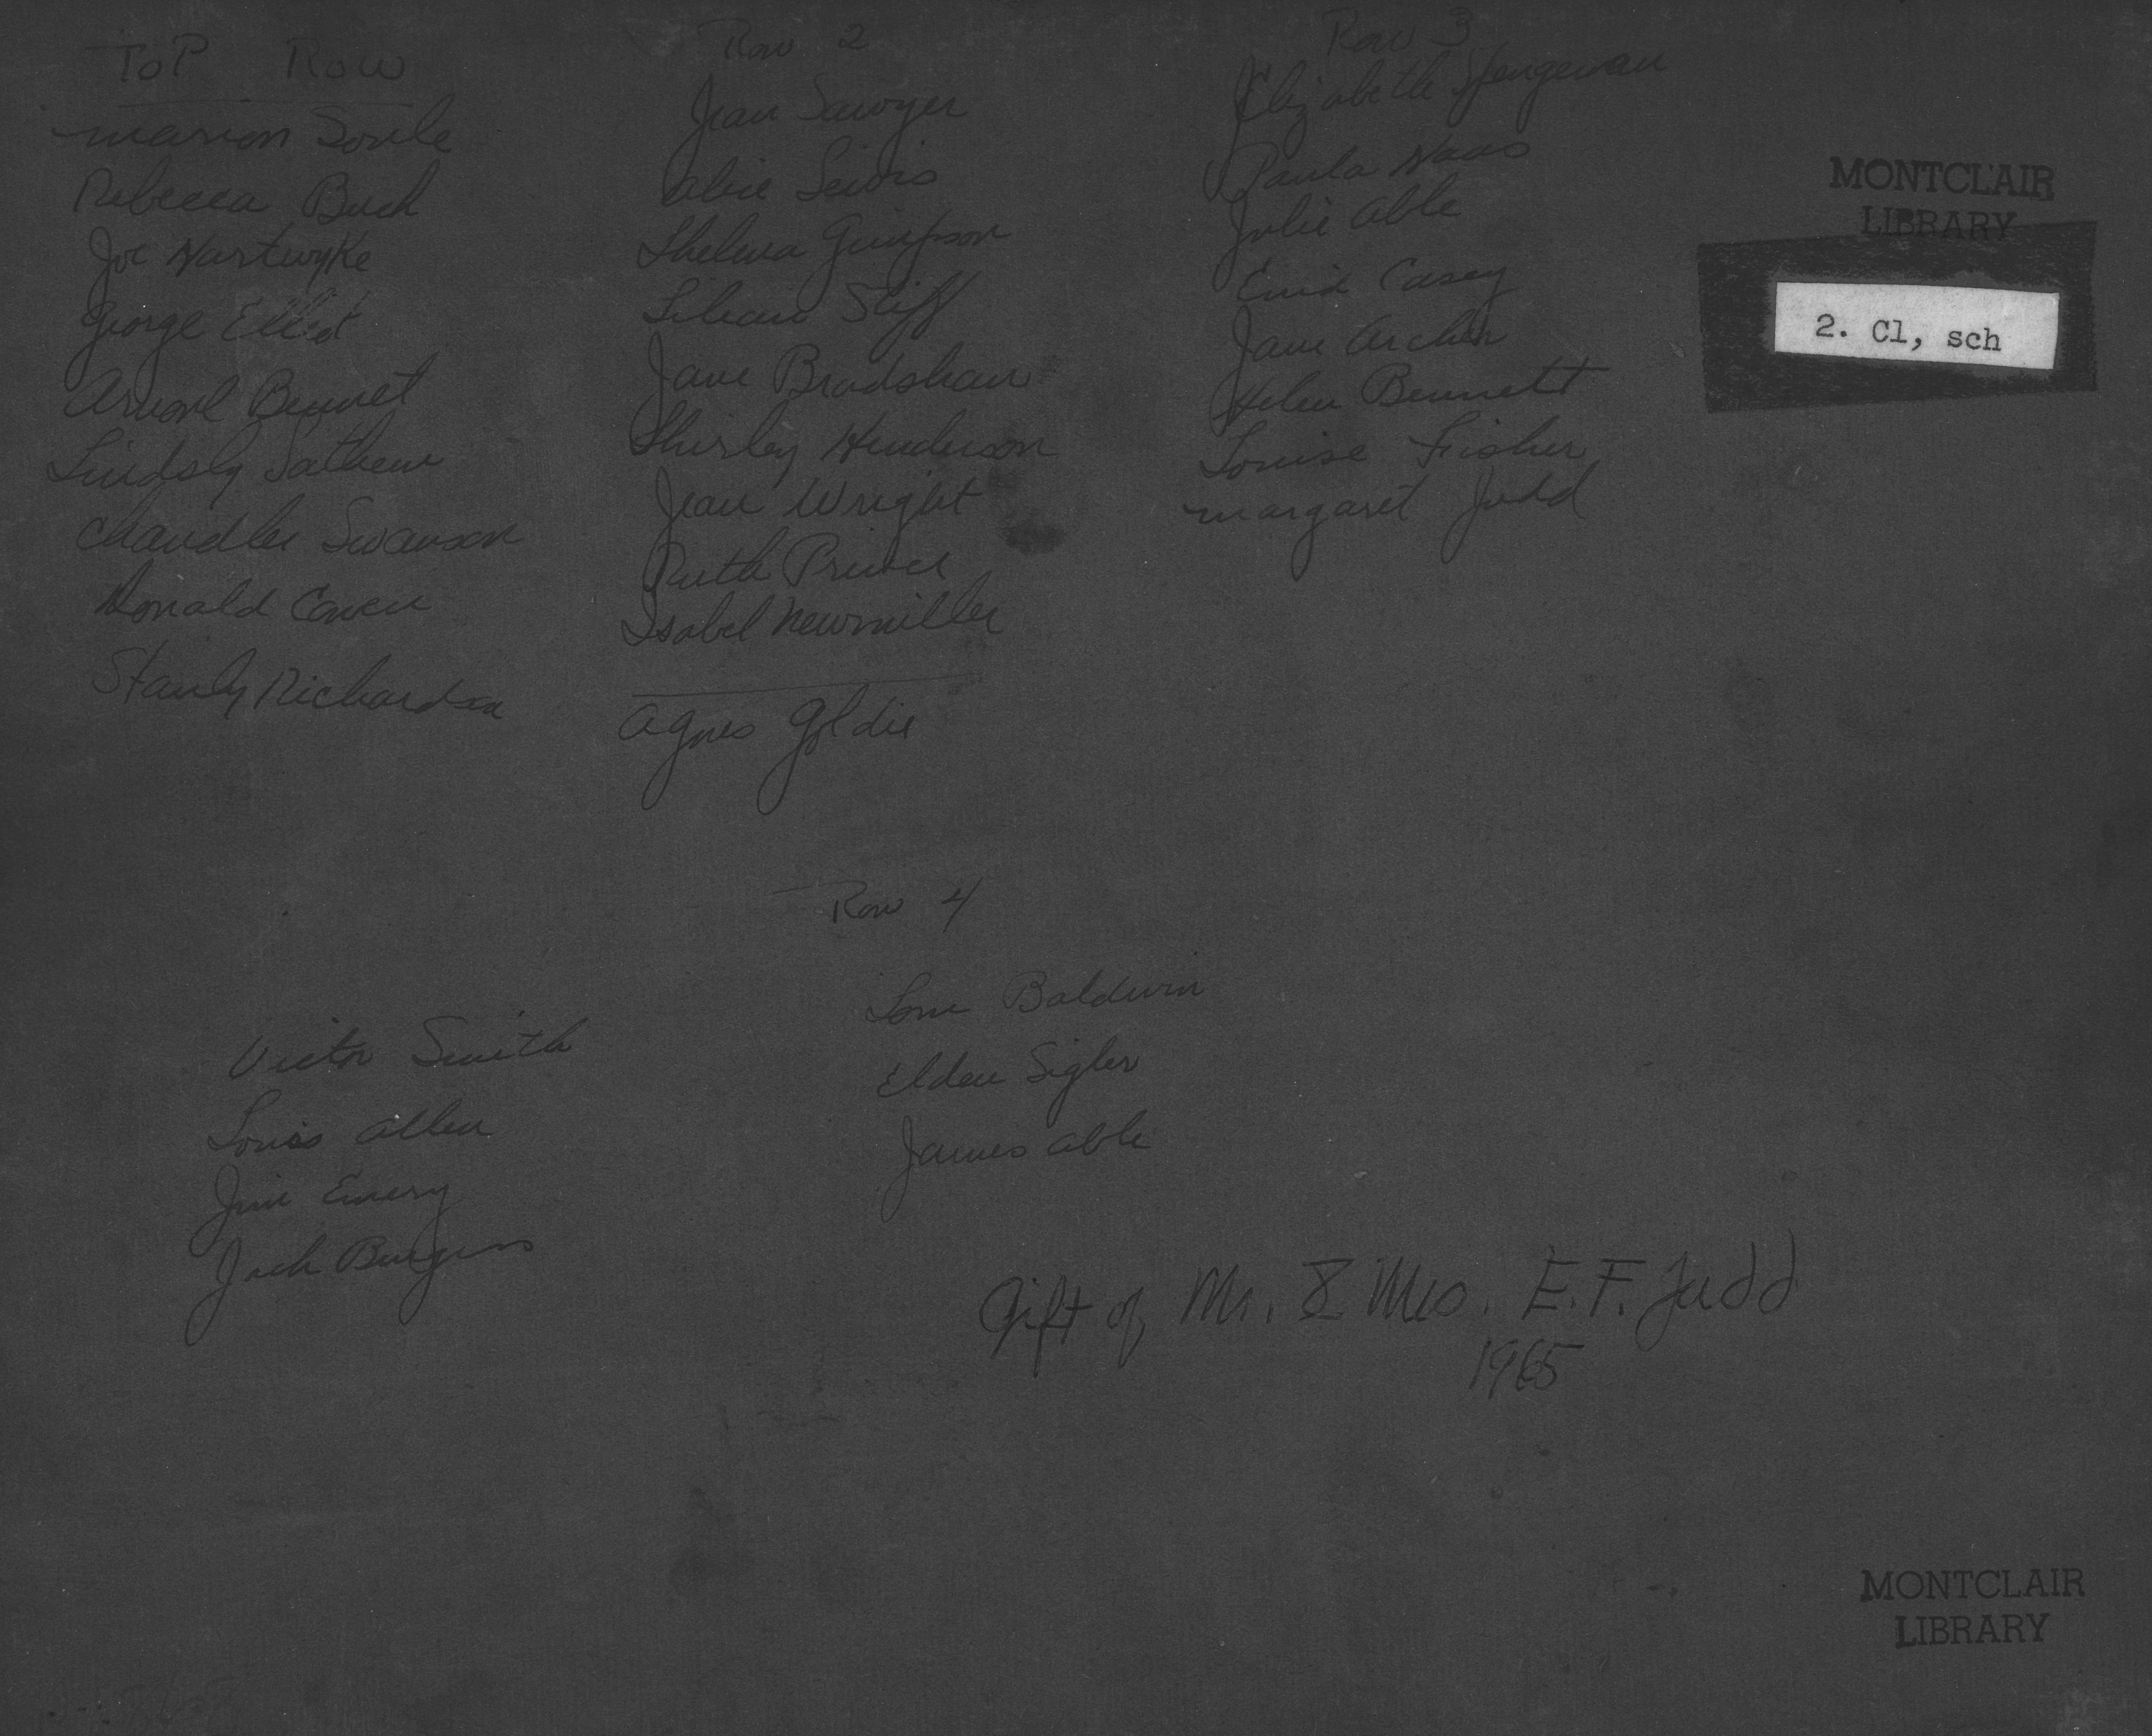 ToP Row
Marion Soule
Rebecca Buck
Joe Hartwyke
George Elliot
Bennet
Lindsly
Chandler Swanson
Donald Caven
Stanly Richardson
Row 2
Jean Sawyer
Alice Lewis
Thelma Gimpson
Lilian Stiff
Jane Bradshaw
Shirley Henderson
Jean Wright
Ruth Prince
Isabel Newmiller
Agnes Goldie
Row 3
Elizabeth
Paula Haas
Julie Able
Enid Casey
Jane Archer
Helen Bennett
Louise Fisher
Margaret Judd
MONTCLAIR
LIBRARY
2. Cl, sch
Row 4
Victor Smith
Louis Allen
Jim Emery
Jack Burgess
Baldwin
Elden Sigler
James Able
Gift of Mr. & Mrs. E.F. Judd
1965
MONTCLAIR
LIBRARY